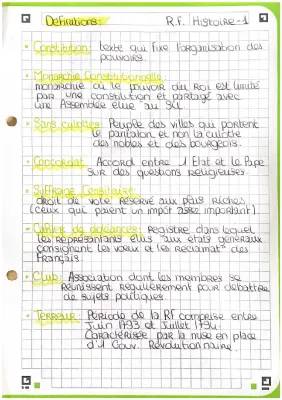 Définitions: R.F. Histoire-1
• Constitution: texte qui fixe l'organisation des
pouvoirs.
• Monarchie Constitutionnelle:
monarchie où le pouvoir du Roi est limité
par une constitution et partagé avec
une Assemblée élue au SU.
• Sans culottes: Peuple des villes qui portent
le pantalon et non la culotte
des nobles et des bourgeois.
• Concordat: Accord entre 1 Etat et le Pape
sur des questions religieuses.
• Suffrage Censitaire:
droit de vote réservé aux plus riches
(ceux qui paient un impôt assez important).
• Cahier de doléances: Registre dans lequel
les représentants élus aux états généraux
consignent les voeux et les réclamat° des
Français.
• Club: Association dont les membres se
réunissent régulièrement pour débattre
de sujets politiques.
• Terreur: Période de la RF comprise entre
Juin 1793 et Juillet 1794.
Caractérisée par la mise en place
d'1 Gouv. Révolutionnaire.